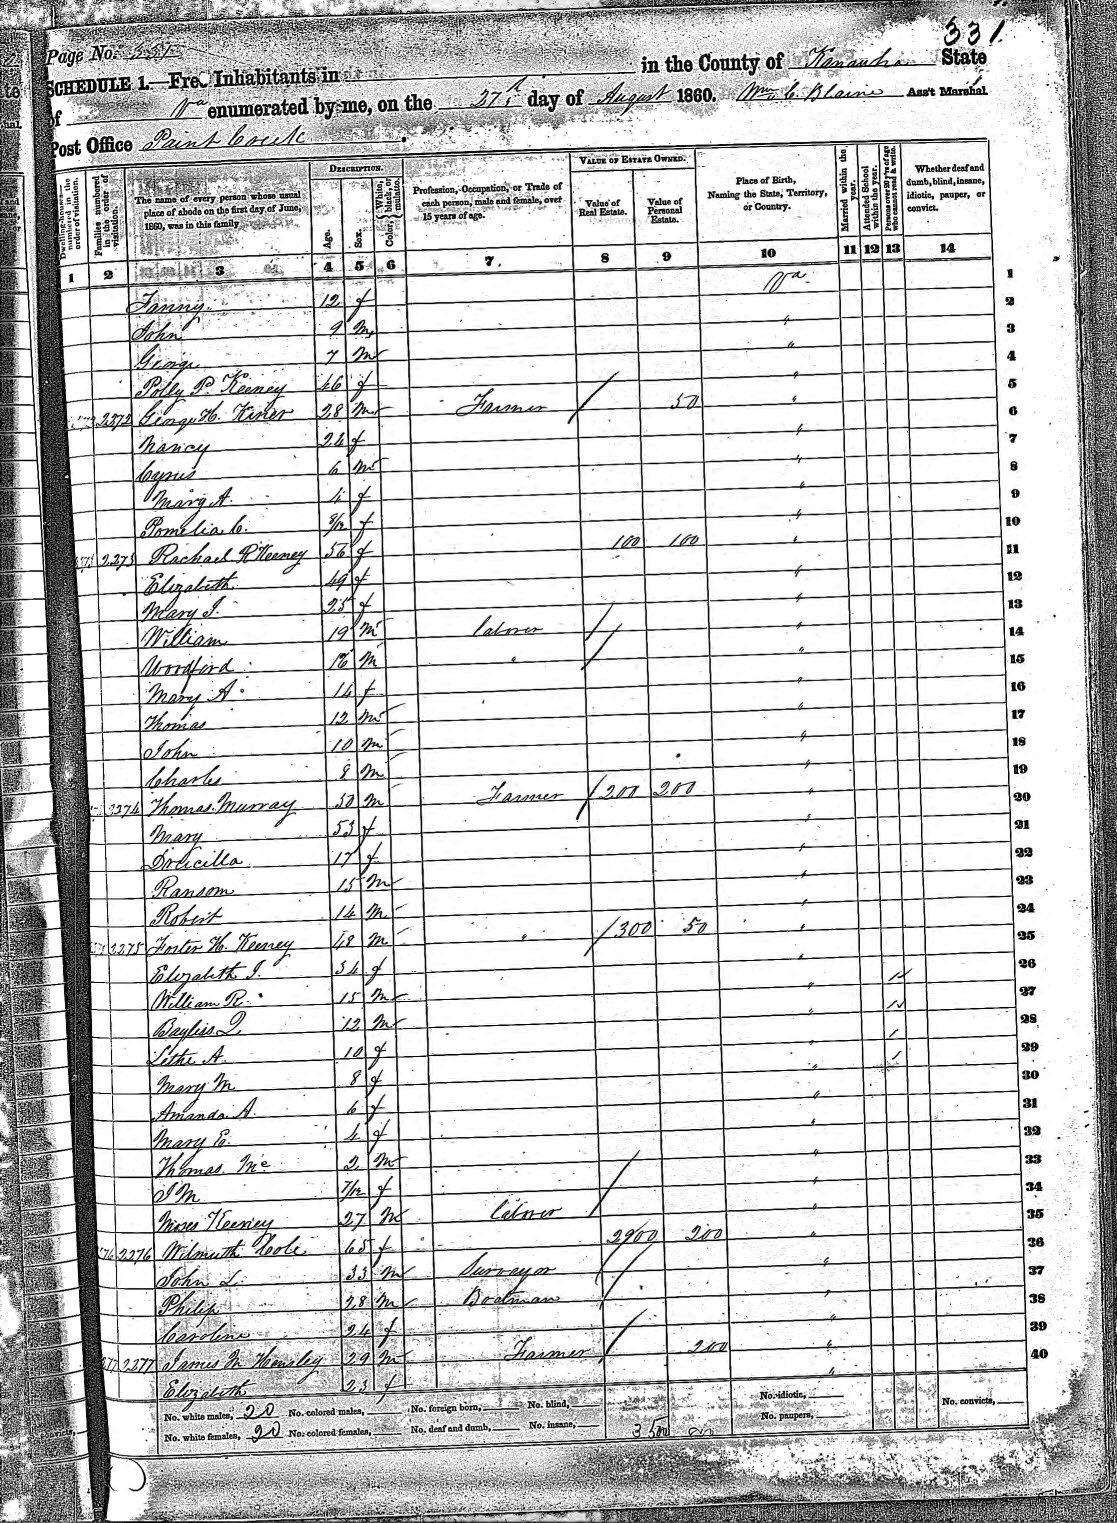 331
Page No.
SCHEDULE 1.—Free Inhabitants in in the County of Kanawha State
of Va enumerated by me, on the 27th day of August 1860. Wm. C. Blaine Ass't Marshal
Post Office Paint Creek
Dwelling-houses numbered in the order of visitation.
Families numbered in the order of visitation.
The name of every person whose usual place of abode on the first day of June, 1860, was in this family
DESCRIPTION.
Age.
Sex.
Color, White, black, or mulatto.
Profession, Occupation, or Trade of each person, male and female, over 15 years of age.
VALUE OF ESTATE OWNED.
Value of Real Estate.
Value of Personal Estate.
Place of Birth, Naming the State, Territory, or Country.
Married within the year.
Attended School within the year.
Persons over 20 y'rs of age who cannot read & write.
Whether deaf and dumb, blind, insane, idiotic, pauper, or convict.
1 2 3 4 5 6 7 8 9 10 11 12 13 14
Fanny 12 f Va 1
John 9 m " 2
George 7 m " 3
Polly P. Keeney 46 f " 4
2272 George H. Kiner 28 m Farmer / 50 " 5
Nancy 24 f " 6
Cyrus 6 m " 7
Mary A. 4 f " 8
Pomelia C. 9/12 f " 9
2273 Rachael R Keeney 56 f 100 100 " 10
Elizabeth 49 f " 11
Mary J. 25 f " 12
William 19 m laborer / " 13
Woodford 16 m " / " 14
Mary A. 14 f " 15
Thomas 12 m " 16
John 10 m " 17
Charles 8 m " 18
2274 Thomas Murray 50 m Farmer / 200 200 " 19
Mary 53 f " 20
Drucilla 17 f " 21
Ransom 15 m " 22
Robert 14 m " 23
2275 Foster H. Keeney 48 m " / 300 50 " 24
Elizabeth J. 34 f " 1 25
William R. 15 m " 1 26
Bayliss Q 12 m " 1 27
Lethe A 10 f " 1 28
Mary M 8 f " 29
Amanda A. 6 f " 30
Mary E. 4 f " 31
Thomas Mc 2 m " 32
J M 7/12 f " 33
Moses Keeney 27 m laborer / " 34
2276 Wilmuth Cole 65 f 2900 200 " 35
John L. 33 m Surveyor / " 36
Philip 28 m Boatman / " 37
Caroline 24 f " 38
2277 James M Hensley 29 m Farmer / 200 " 39
Elizabeth 23 f " 40
No. white males, 20 No. colored males, No. foreign born, No. blind, No. idiotic, No. convicts,
No. white females, 20 No. colored females, No. deaf and dumb, No. insane, 3500 No. paupers,